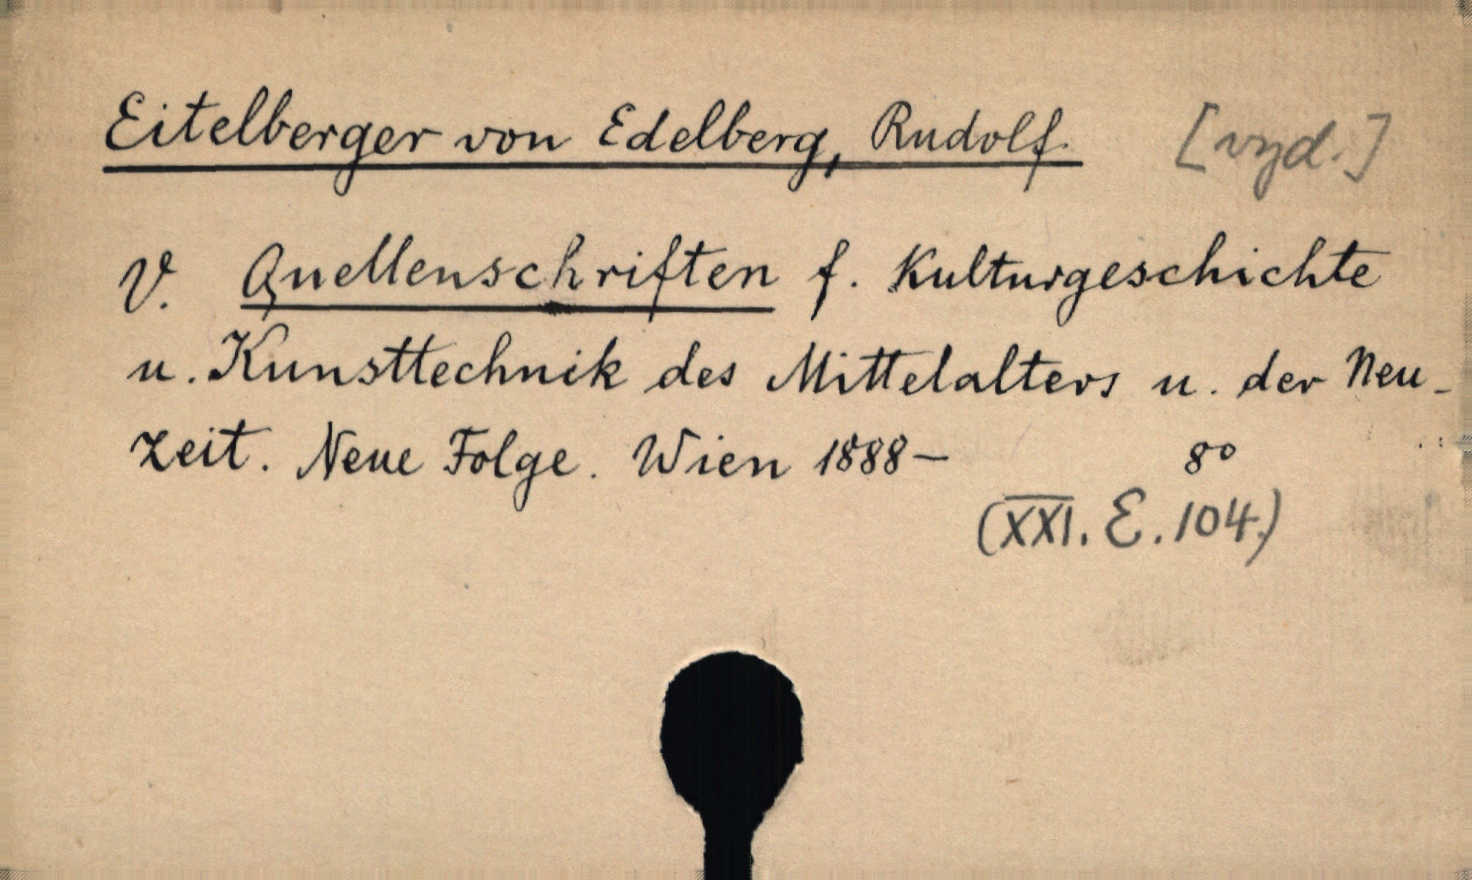 Eitelberger von Edelberg, Rudolf. [vyd.]
V. Quellenschriften f. Kulturgeschichte
u. Kunsttechnik des Mittelalters u. der Neu-
zeit. Neue Folge. Wien 1888- 8°
(XXI. E. 104.)